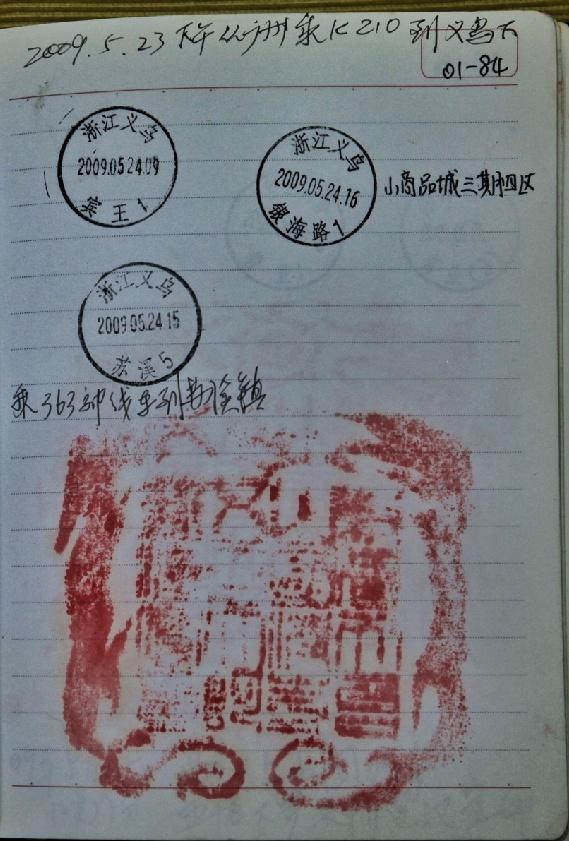 2009.5.23下午从广州乘K210到义乌下
01-84
浙江义乌
2009.05.24.09
宾王1
浙江义乌
2009.05.24.16
银海路1
小商品城三期四区
浙江义乌
2009.05.24.15
苏溪5
乘363 线车到苏溪镇